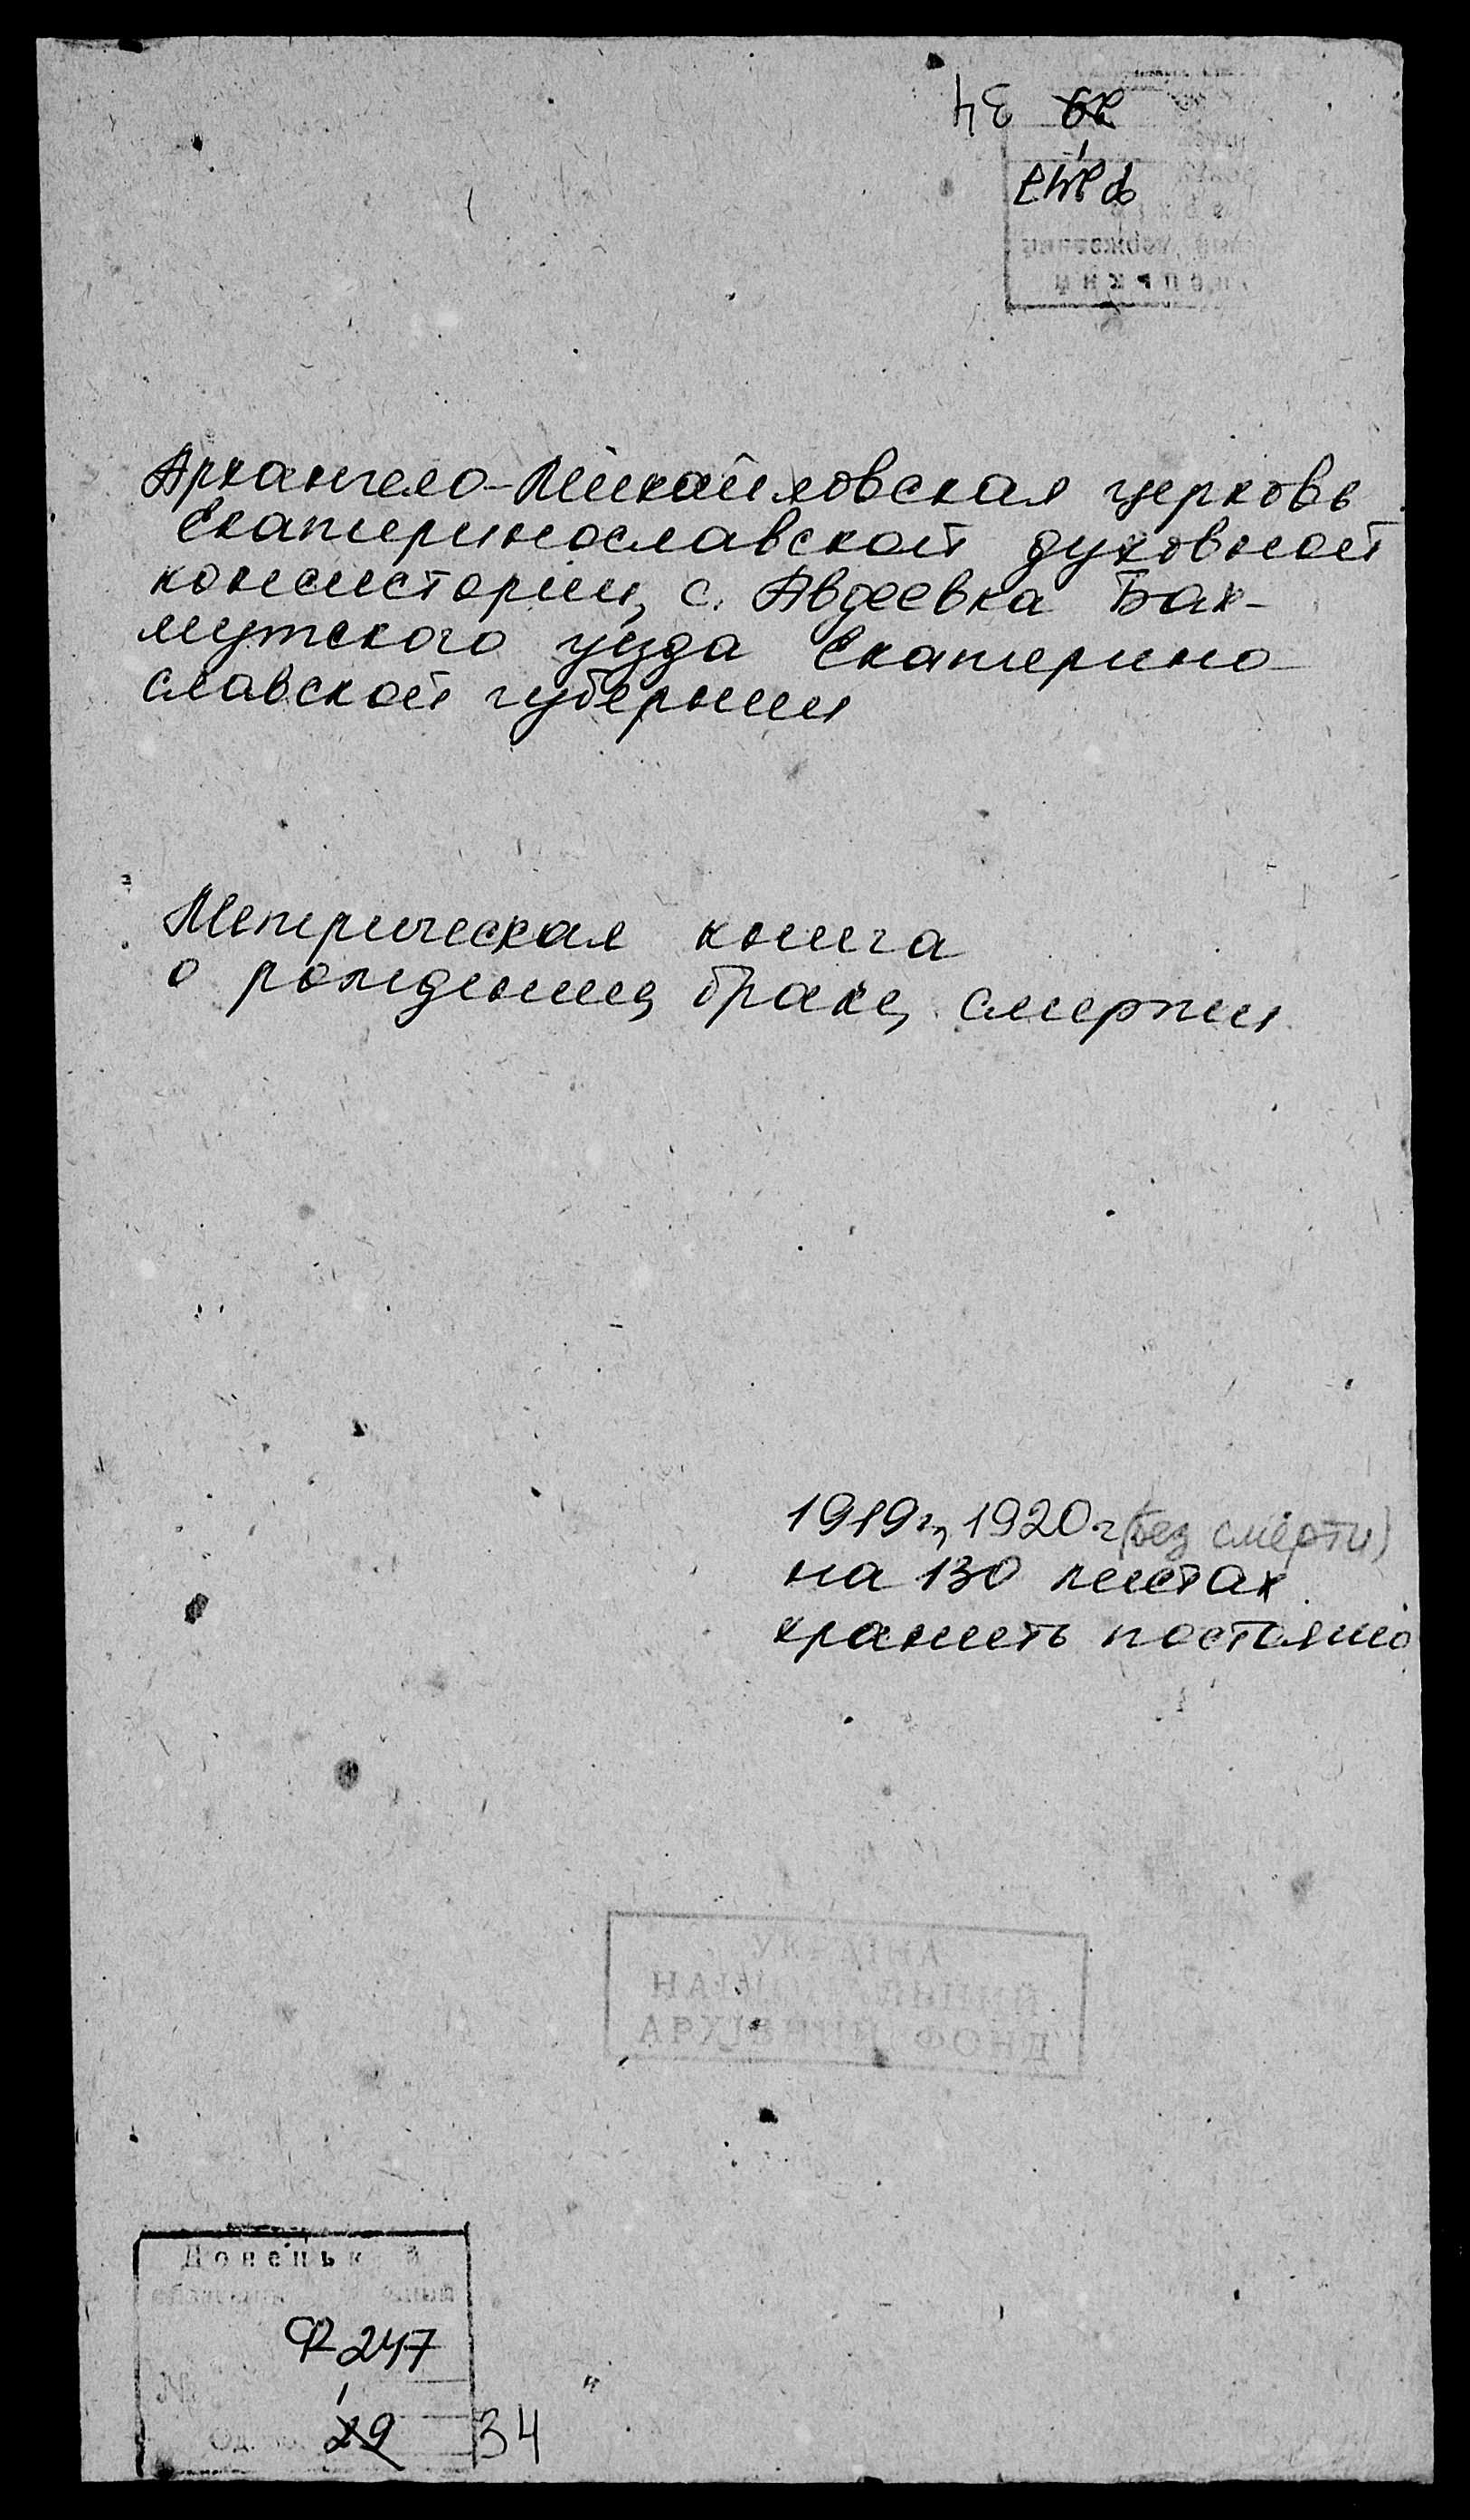 34 29
Ф247
1
Архангело-Михайловская церковь
Екатеринославской духовной
консистории, с. Авдеевка Бах-
мутского уезда Екатерино-
славской губернии
Метрическая книга
о рождении, браке, смерти
1919г, 1920г (без смерти)
на 130 листах
хранить постоянно
УКРАЇНА
НАЦІОНАЛЬНИЙ
АРХІВНИЙ ФОНД
Донецький
Ф247
1
Од. 29 34